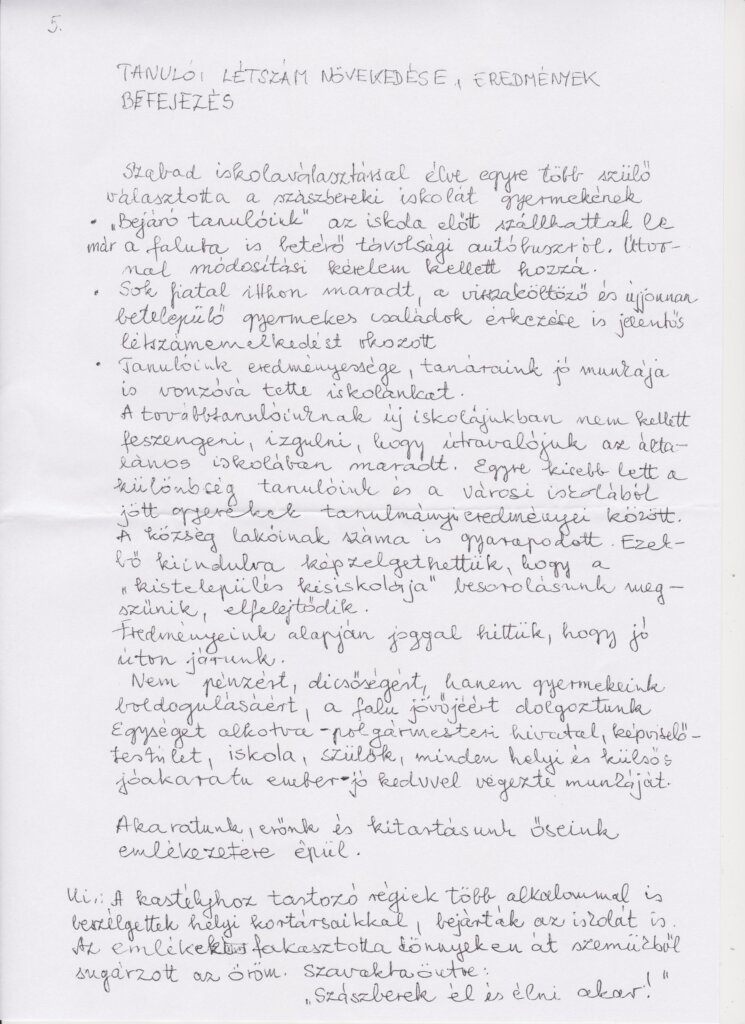 5.
TANULÓI LÉTSZÁM NÖVEKEDÉSE, EREDMÉNYEK
BEFEJEZÉS
Szabad iskolaválasztással élve egyre több szülő
választotta a szászbereki iskolát gyermekének
• „Bejáró tanulóink" az iskola előtt szállhattak le
már a faluba is betérő távolsági autóbuszról. Útvo-
nal módosítási kérelem kellett hozzá.
• Sok fiatal itthon maradt, a visszaköltöző és újjonnan
betelepülő gyermekes családok érkezése is jelentős
létszámemelkedést okozott
• Tanulóink eredményessége, tanáraink jó munkája
is vonzóvá tette iskolánkat.
A továbbtanulóinknak új iskolájukban nem kellett
feszengeni, izgulni, hogy útravalójuk az álta-
lános iskolában maradt. Egyre kisebb lett a
különbség tanulóink és a városi iskolából
jött gyerekek tanulmányi eredményei között.
A község lakóinak száma is gyarapodott. Ezek-
ből kiindulva képzelgethettük, hogy a
„kistelepülés kisiskolája" besorolásunk meg-
szűnik, elfelejtődik.
Eredményeink alapján joggal hittük, hogy jó
úton járunk.
Nem pénzért, dicsőségért, hanem gyermekeink
boldogulásáért, a falu jövőjéért dolgoztunk
Egységet alkotva - polgármesteri hivatal, képviselő-
testület, iskola, szülők, minden helyi és külsős
jóakaratu ember - jó kedvvel végezte munkáját.
Akaratunk, erőnk és kitartásunk őseink
emlékezetére épül.
Ui.: A kastélyhoz tartozó régiek több alkalommal is
beszélgettek helyi kortársaikkal, bejárták az iskolát is.
Az emlékek fakasztotta könnyeken át szemükből
sugárzott az öröm. Szavakba öntve:
„Szászberek él és élni akar!"